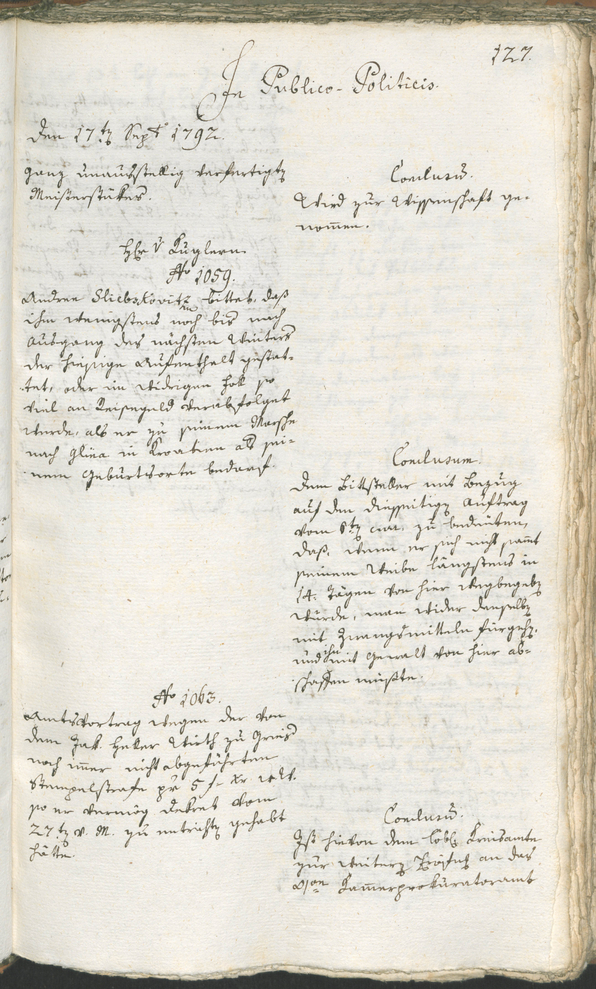 127.
In Publico-Politicis.
Den 17t Sept 1792.
ganz unausstellig verfertigt
Meisterstükes.
Conclusum.
Wird zur Wissenschaft ge-
nommen.
H v Kuglern
No 1059.
Andree bittet, daß
ihm wenigstens noch bis nach
Ausgang des nächsten Winters
der hiesige Aufenthalt gestat-
tet, oder im widrigen so
viel an Reisegeld verabfolget
werde, als er zu seinem Marsche
nach Glina in Kroatien als sei-
nem Geburtsorte bedarf.
Conclusum.
Dem Bittsteller mit Bezug
auf den diesseitig Auftrag
vom 6t cur. zu bedeuten,
daß, wenn er sich nicht samt
seinem Weibe längstens in
14. Tägen von hier wegbegebe
würde, man wider denselb
mit Zwangsmitteln fürgeh,
und ihn mit Gewalt von hier ab-
schaffen müßte.
No 1063.
Amtsvortrag wegen der von
dem Jak. Huber Wirth zu Gries
noch imer nicht abgeführten
Stempelstrafe pr 5 f xr
so er vermög Dekret vom
27t v. M. zu entricht gehabt
hätte.
Conclusum.
Ist hievon dem löbl Kreisamte
zur weiter an das
Kamerprokuratoramt